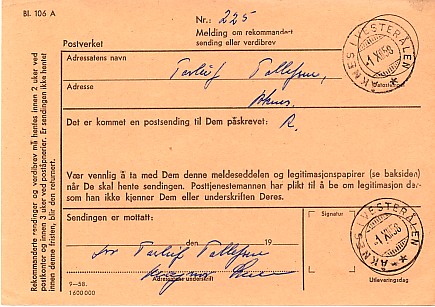 Bl. 106 A
Nr.: 225
Postverket
Melding om rekommandert
sending eller verdibrev
Adressatens navn
Adresse
ÅKNES I VESTERÅLEN
-1 XII 58
Ankomstdag
Det er kommet en postsending til Dem påskrevet: R.
Vær vennlig å ta med Dem denne meldeseddelen og legitimasjonspapirer (se baksiden)
når De skal hente sendingen. Posttjenestemannen har plikt til å be om legitimasjon der-
som han ikke kjenner Dem eller underskriften Deres.
Sendingen er mottatt:
den 19
for
Adressatens underskrift
Signatur
ÅKNES I VESTERÅLEN
-1 XII 58
Utleveringsdag
9-58.
1 600 000
Rekommanderte sendinger og verdibrev må hentes innen 2 uker ved
postkontor og innen 3 uker ved poståpnerier. Er sendingen ikke hentet
innen denne fristen, blir den returnert.